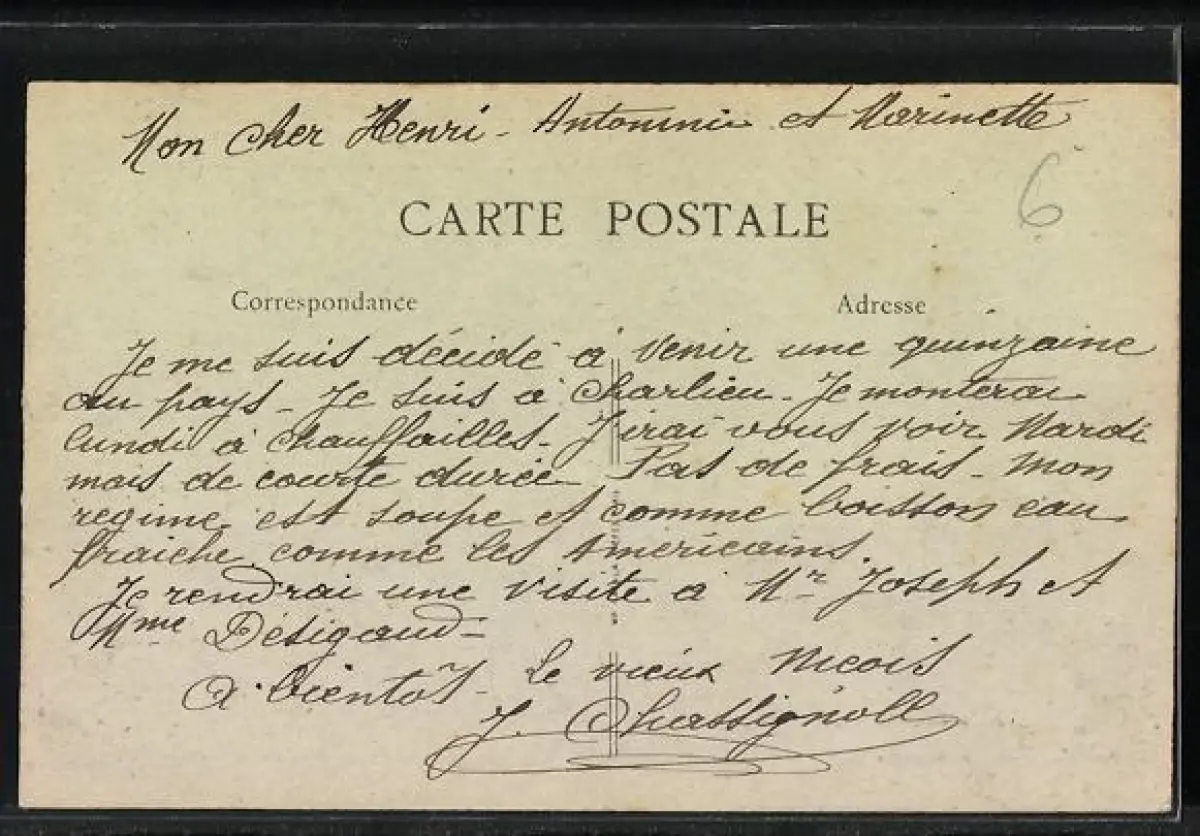 Mon cher Henri - Antominie et Marinette
6
CARTE POSTALE
Correspondance
Adresse
Je me suis décidé à venir une quinzaine
au pays - Je suis à Charlieu - Je monterai
lundi à Chauffailles - J'irai vous voir Mardi
mais de courte durée Pas de frais - Mon
regime est soupe et comme boisson eau
fraiche comme les Américains.
Je rendrai une visite à Mr Joseph et
Mme Désigaud -
A bientôt - Le vieux Nicois
J. Chassignoll